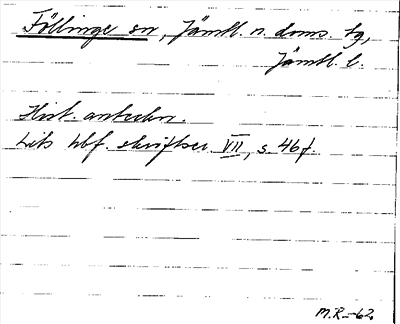 Föllinge sn, Jämtl. n. doms. tg,
Jämtl. l.
Hist. anteckn.
Lits hbf. skriftser. VII, s. 46f.
M.R-62